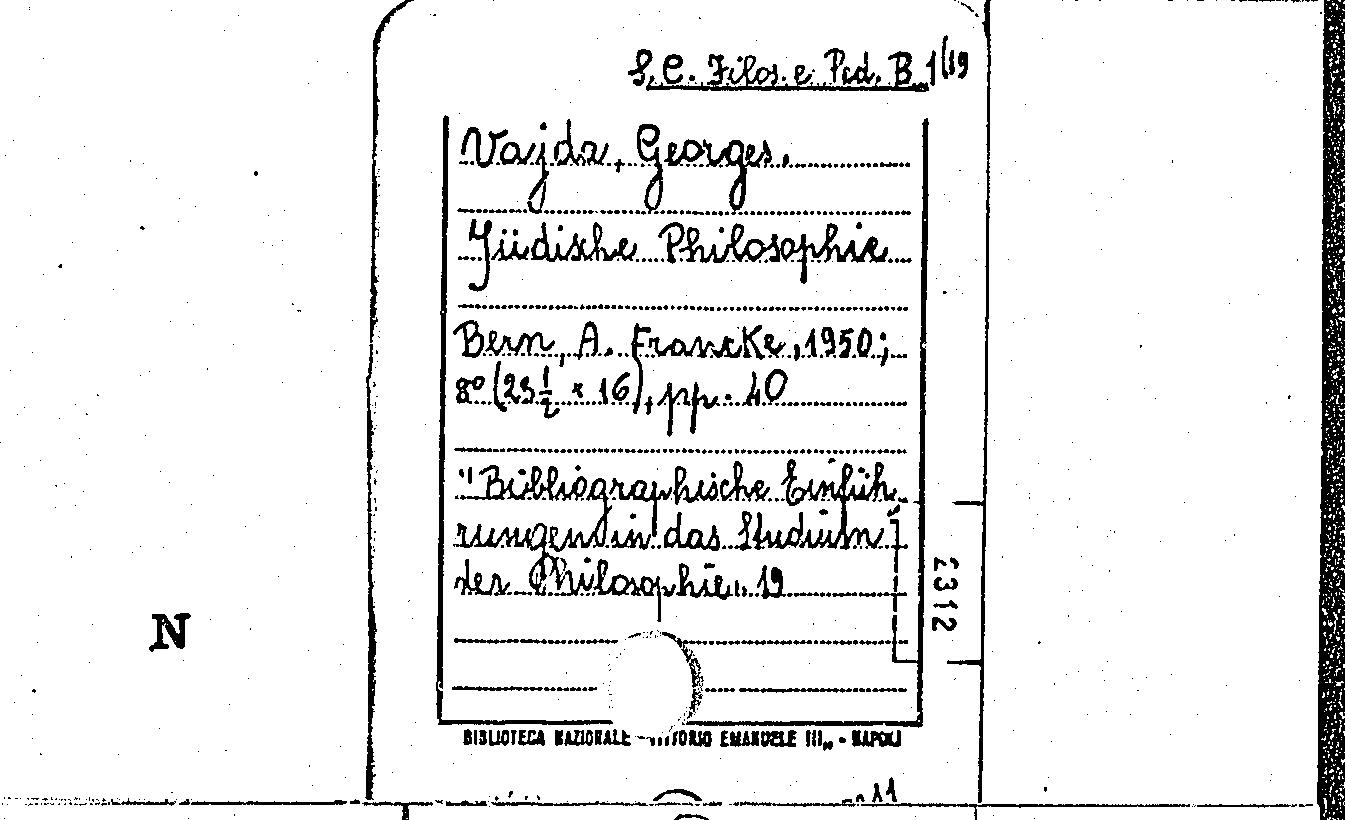 S.C. Filos. e Ped. B 1/19
Vajda, Georges.
Jüdische Philosophie
Bern, A. Francke, 1950;
8º (23½ × 16), pp. 40
"Bibliographische Einfüh-
rungen in das Studium
der Philosophie„ 19
2312
N
BIBLIOTECA NAZIONALE EMANUELE III„ - NAPOLI
11